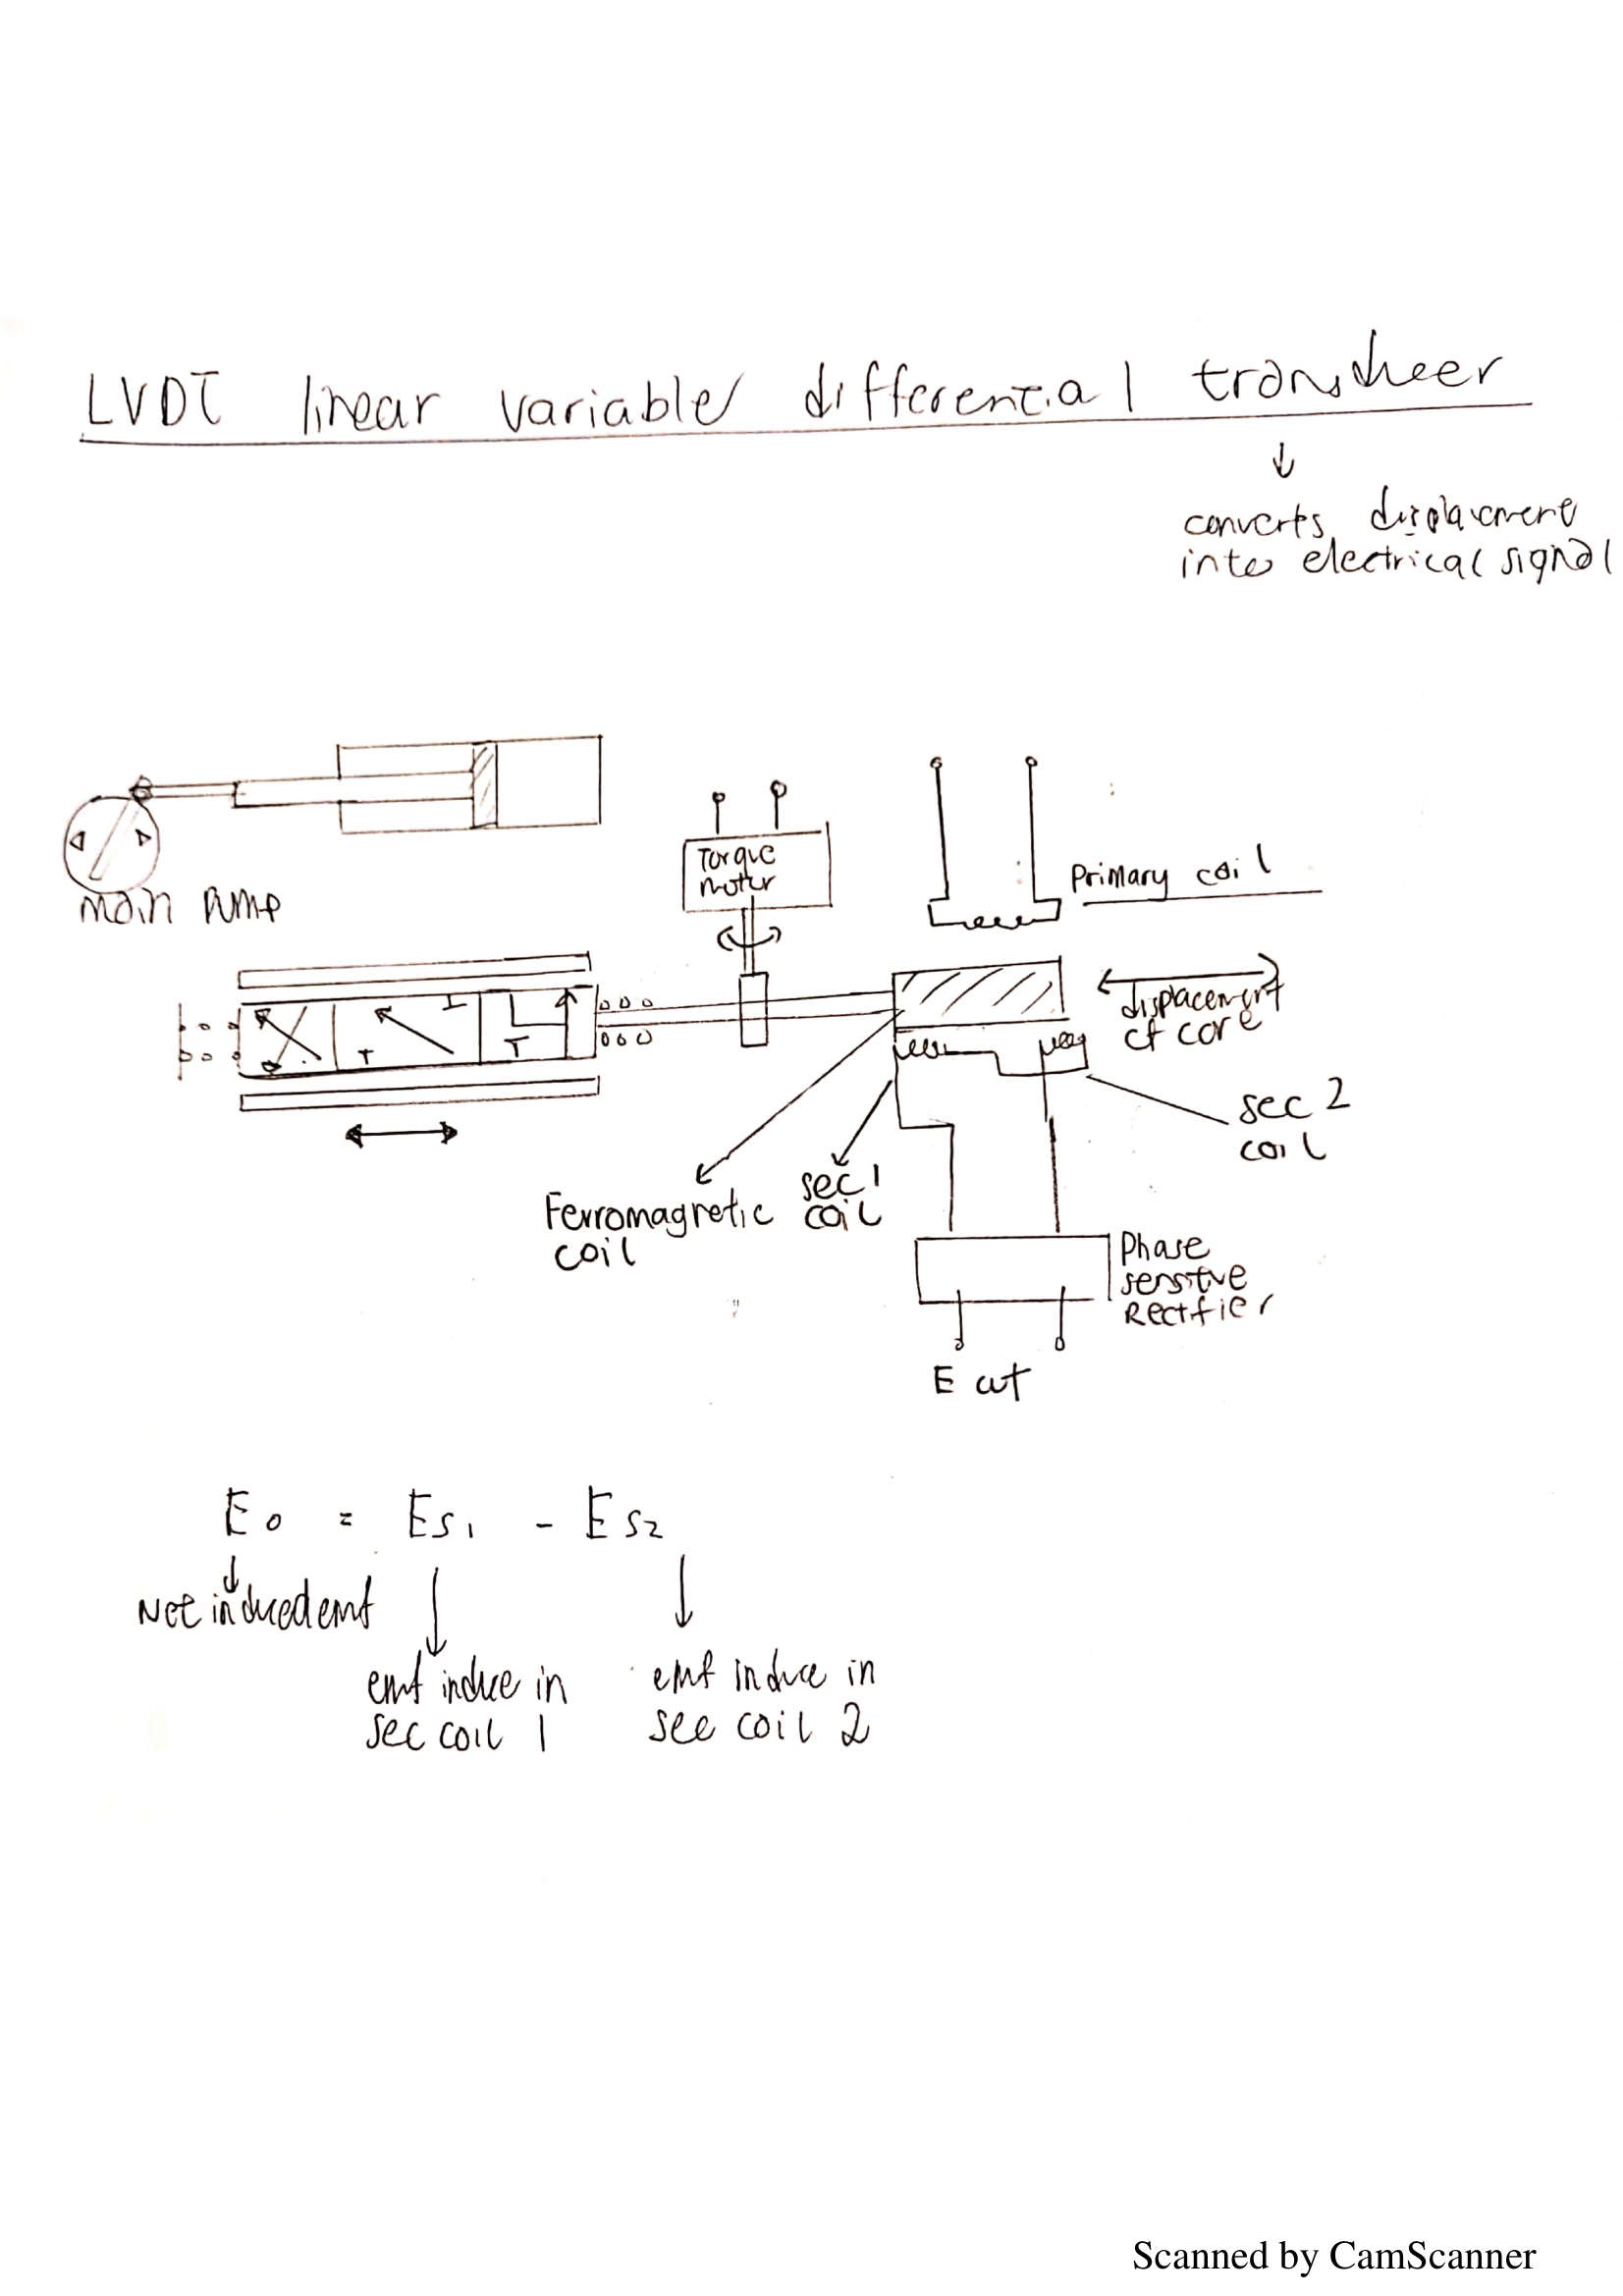 LVDT linear variable differential transducer
converts displacement
into electrical signal
Torque
motor
Primary coil
main pump
displacement
of core
T
T
sec 2
coil
Ferromagnetic
coil
sec 1
coil
Phase
sensitive
Rectifier
E out
Eo = Es1 - Es2
Net induced emf
emf induce in
sec coil 1
emf induce in
sec coil 2
Scanned by CamScanner